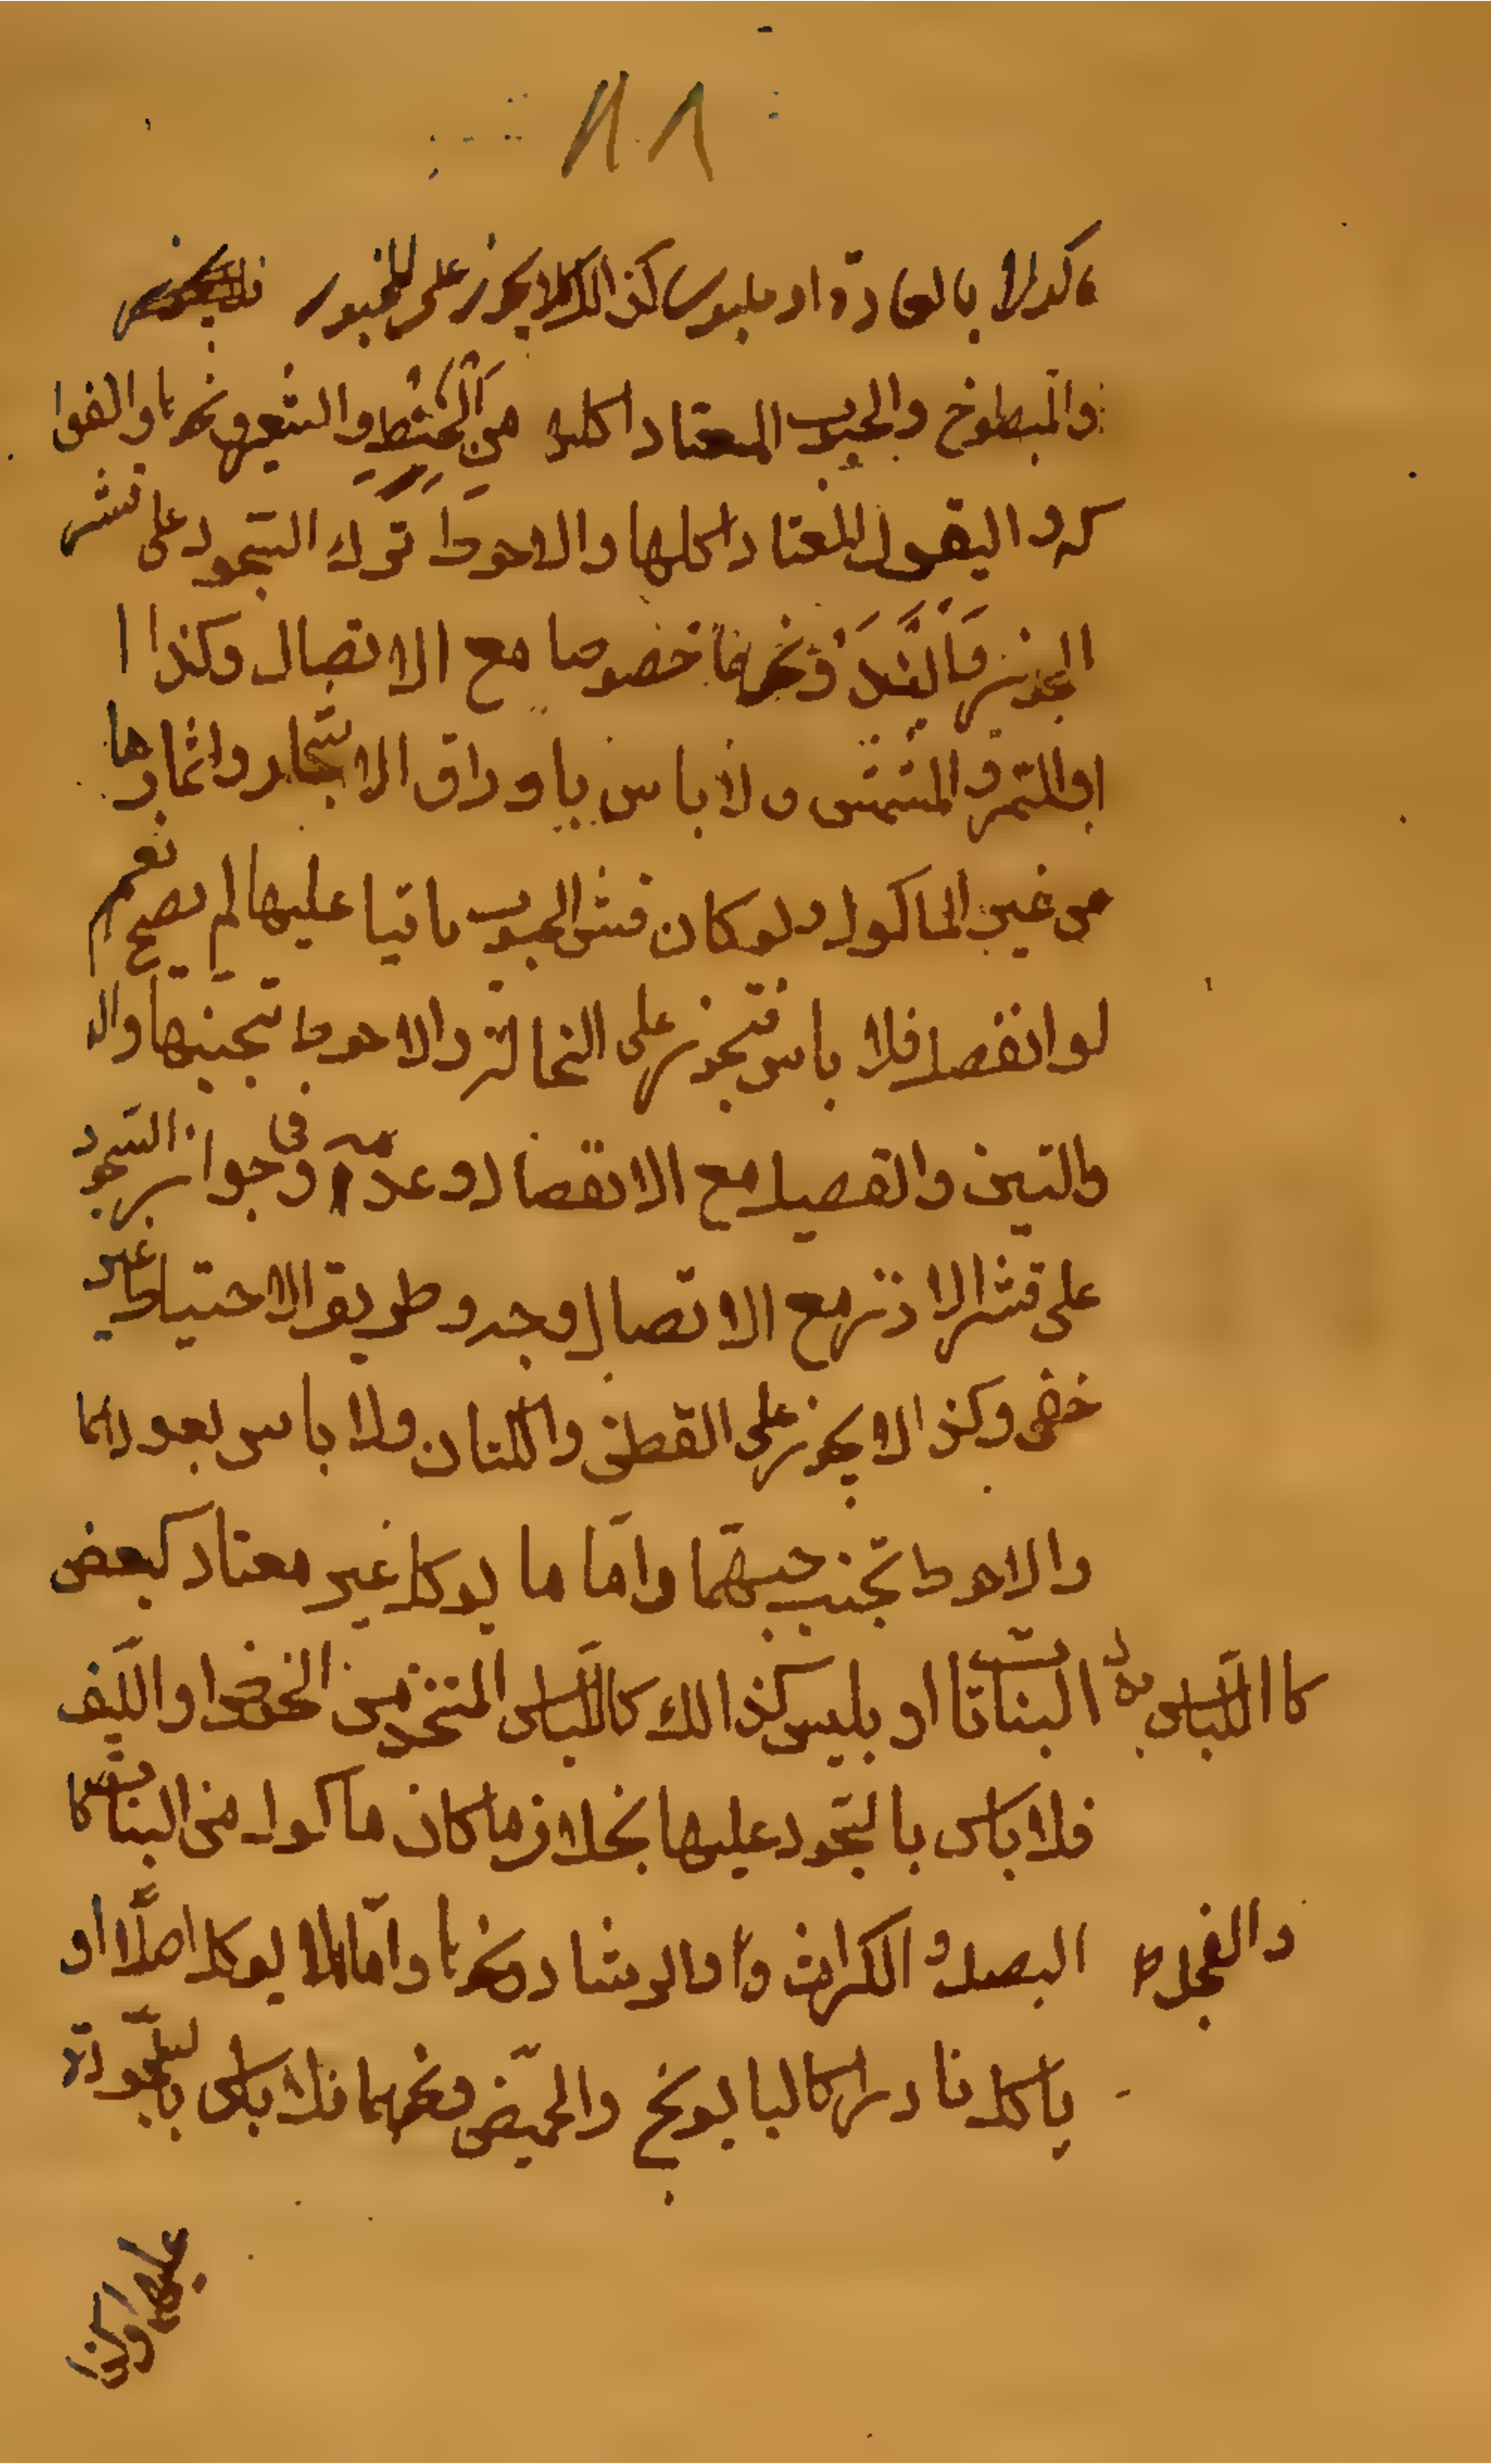 ١٨٨
ماكولا بالعادة او ملبوس كذالك لا يجوز على المخبور
والمطبوخ والحبوب المعتاد اكله من الحنطة والشعير ونحوها والفوا
كه و البقول المعتاد اكلها والاحوط ترك السجود على قشر
الجوز واللوز ونحوهما خصوصا مع الاتصال وكذا
التمر و المشمش ولا باس باوراق الاشجار واثمارها
من غير الماكول ولو كان قشر الحبوب باقيا عليها لم يصح نعم
لو انفصل فلا باس فتجوز على النخالة والاحوط تجنبها وال
والتين والقصيل مع الانفصال وعدمه وفي جواز السجود
على قشر الارز مع الاتصال وجه وطريق الاحتياط غير
خفى وكذا لا يجوز على القطن والكتان ولا باس بعودهما
والاحوط تجنب حبهما واما ما يوكل غير معتاد كبعض
النباتات او يلبس كذالك كاللباس المتخذ من الخوص او الليف
كا اللباس
فلا باس بالسجود عليها بخلاف ما كان ماكول من النباتات كا
البصل و الكراث و الرشاد ونحوها واما ما لا يوكل اصلا او
والفجل
ياكل نادرا كالبابونج والحميض ونحوهما فلا باس بالسجود
عليها وكذا